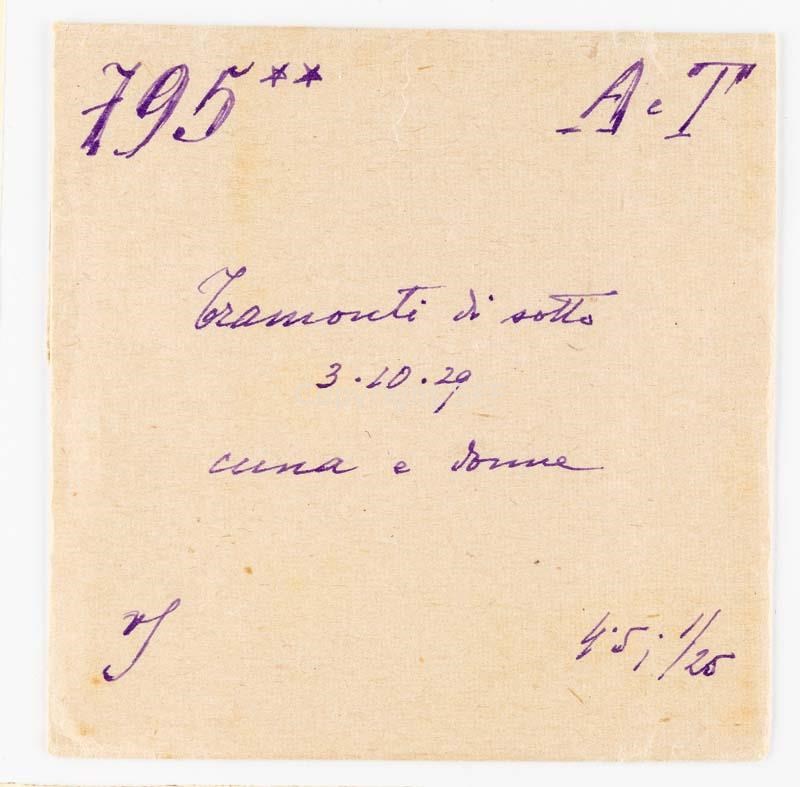 795** A e T
Tramonti di sotto
3.10.29
cuna e donne
4.5; 1/25